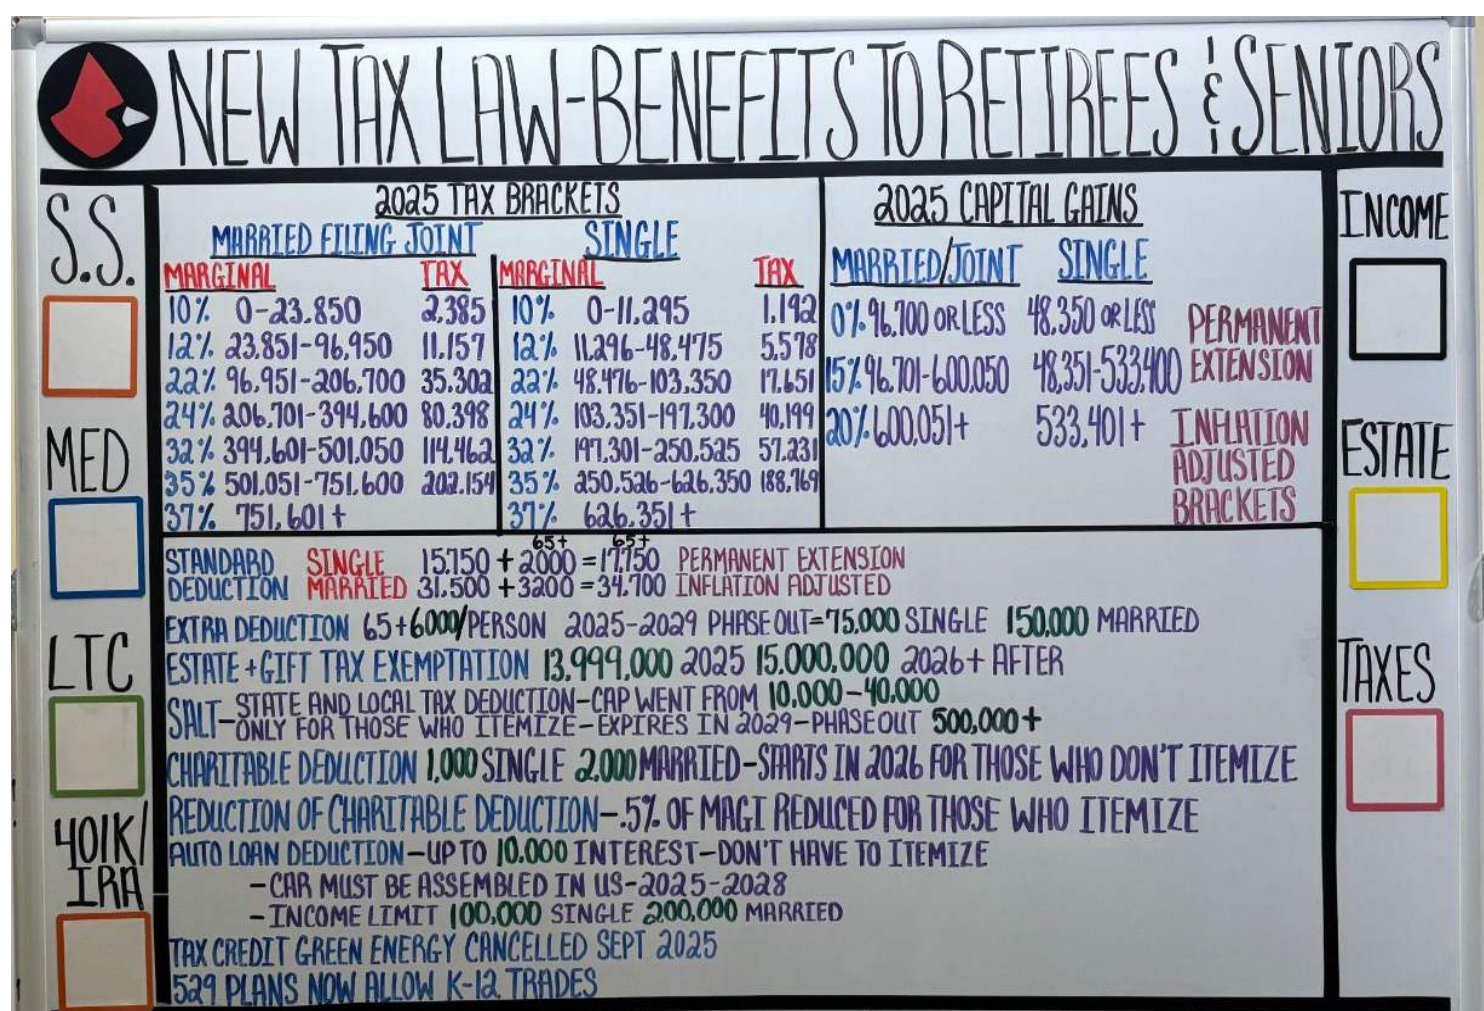 NEW TAX LAW-BENEFITS TO RETIREES & SENIORS
S.S.
MED
LTC
401K/
IRA
2025 TAX BRACKETS
MARRIED FILING JOINT SINGLE
MARGINAL TAX MARGINAL TAX
10% 0-23.850 2,385 10% 0-11,295 1,192
12% 23.851-96,950 11,157 12% 11,296-48,475 5,578
22% 96,951-206,700 35.302 22% 48,476-103,350 17,651
24% 206,701-394,600 80,398 24% 103,351-197,300 40,199
32% 394,601-501,050 114,462 32% 197,301-250,525 57,231
35% 501,051-751,600 202,154 35% 250,526-626,350 188,769
37% 751,601+ 37% 626,351+
2025 CAPITAL GAINS
MARRIED/JOINT SINGLE
0% 96,700 OR LESS 48,350 OR LESS
15% 96,701-600,050 48,351-533,400
20% 600,051+ 533,401+
PERMANENT
EXTENSION
INFLATION
ADJUSTED
BRACKETS
65+ 65+
STANDARD SINGLE 15.750 + 2000 = 17,750 PERMANENT EXTENSION
DEDUCTION MARRIED 31,500 + 3200 = 34,700 INFLATION ADJUSTED
EXTRA DEDUCTION 65+ 6000/PERSON 2025-2029 PHASE OUT= 75,000 SINGLE 150,000 MARRIED
ESTATE + GIFT TAX EXEMPTATION 13,999,000 2025 15,000,000 2026+ AFTER
SALT-STATE AND LOCAL TAX DEDUCTION-CAP WENT FROM 10,000-40,000
-ONLY FOR THOSE WHO ITEMIZE-EXPIRES IN 2029-PHASEOUT 500,000+
CHARITABLE DEDUCTION 1,000 SINGLE 2,000 MARRIED-STARTS IN 2026 FOR THOSE WHO DON'T ITEMIZE
REDUCTION OF CHARITABLE DEDUCTION-.5% OF MAGI REDUCED FOR THOSE WHO ITEMIZE
AUTO LOAN DEDUCTION-UP TO 10.000 INTEREST-DON'T HAVE TO ITEMIZE
-CAR MUST BE ASSEMBLED IN US-2025-2028
-INCOME LIMIT 100,000 SINGLE 200,000 MARRIED
TAX CREDIT GREEN ENERGY CANCELLED SEPT 2025
529 PLANS NOW ALLOW K-12 TRADES
INCOME
ESTATE
TAXES